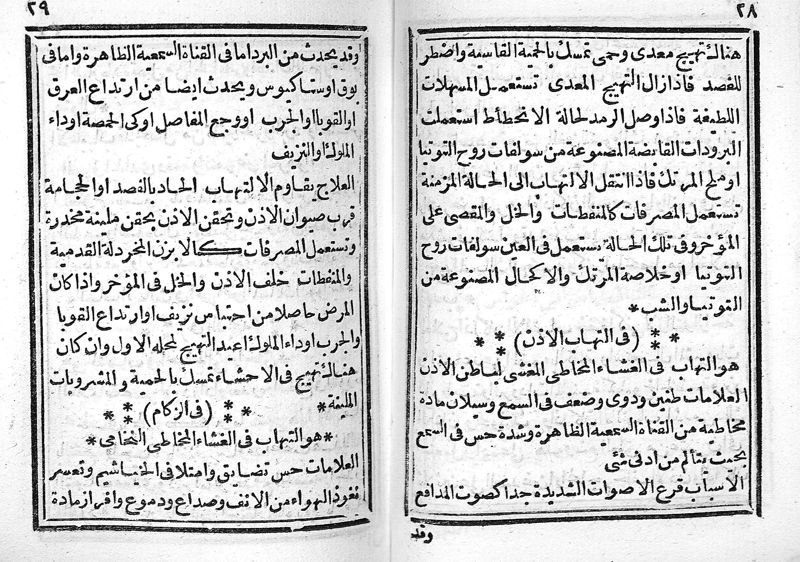 ٢٨
هناك تهييج معدى وحمى تمسك بالحمية القاسية واضطر
للفصد فاذا زال التهييج المعدى تستعمل المسهلات
اللطيفة فاذا وصل الرمد لحالة الانحطاط استعملت
البرودات القابضة المصنوعة من سولفات روح التوتيا
او ملح المرتك فاذا انتقل الالتهاب الى الحالة المزمنة
تستعمل المصرفات كالمنفطات والخل والمقصى على
المؤخر وفى تلك الحالة يستعمل فى العين سولفات روح
التوتيا او خلاصة المرتك والاكحال المصنوعة من
التوتيا والشب *
* * (فى التهاب الاذن) * *
هو التهاب فى الغشاء المخاطى المغشى لباطن الاذن
العلامات طنين ودوى وضعف فى السمع وسيلان مادة
مخاطية من القناة السمعية الظاهرة وشدة حس فى السمع
بحيث يتألم من ادنى شئ
الاسباب قرع الاصوات الشديدة جدا كصوت المدافع
وقد
٢٩
وقد يحدث من البرد اما فى القناة السمعية الظاهرة واما فى
بوق اوستاكيوس ويحدث ايضا من ارتداع العرق
او القوبا او الجرب او وجع المفاصل او كى الحمصة او داء
الملوك او النزيف
العلاج يقاوم الالتهاب الحاد بالفصد او الحجامة
قرب صيوان الاذن وتحقن الاذن بحقن ملينة مخدرة
وتستعمل المصرفات كالابزن الخردلة القدمية
والمنفطات خلف الاذن والخل فى المؤخر واذا كان
المرض حاصلا من احتباس نزيف او ارتداع القوبا
والجرب او داء الملوك اعيد التهييج لمحله الاول وان كان
هناك تهييج فى الاحشاء تمسك بالحمية والمشروبات
الملينة * * * (فى الزكام) * *
* هو التهاب فى الغشاء المخاطى النخامى *
العلامات حس تضايق وامتلا فى الخياشيم وتعسر
نفوذ الهواء من الانف وصداع ودموع وافراز مادة